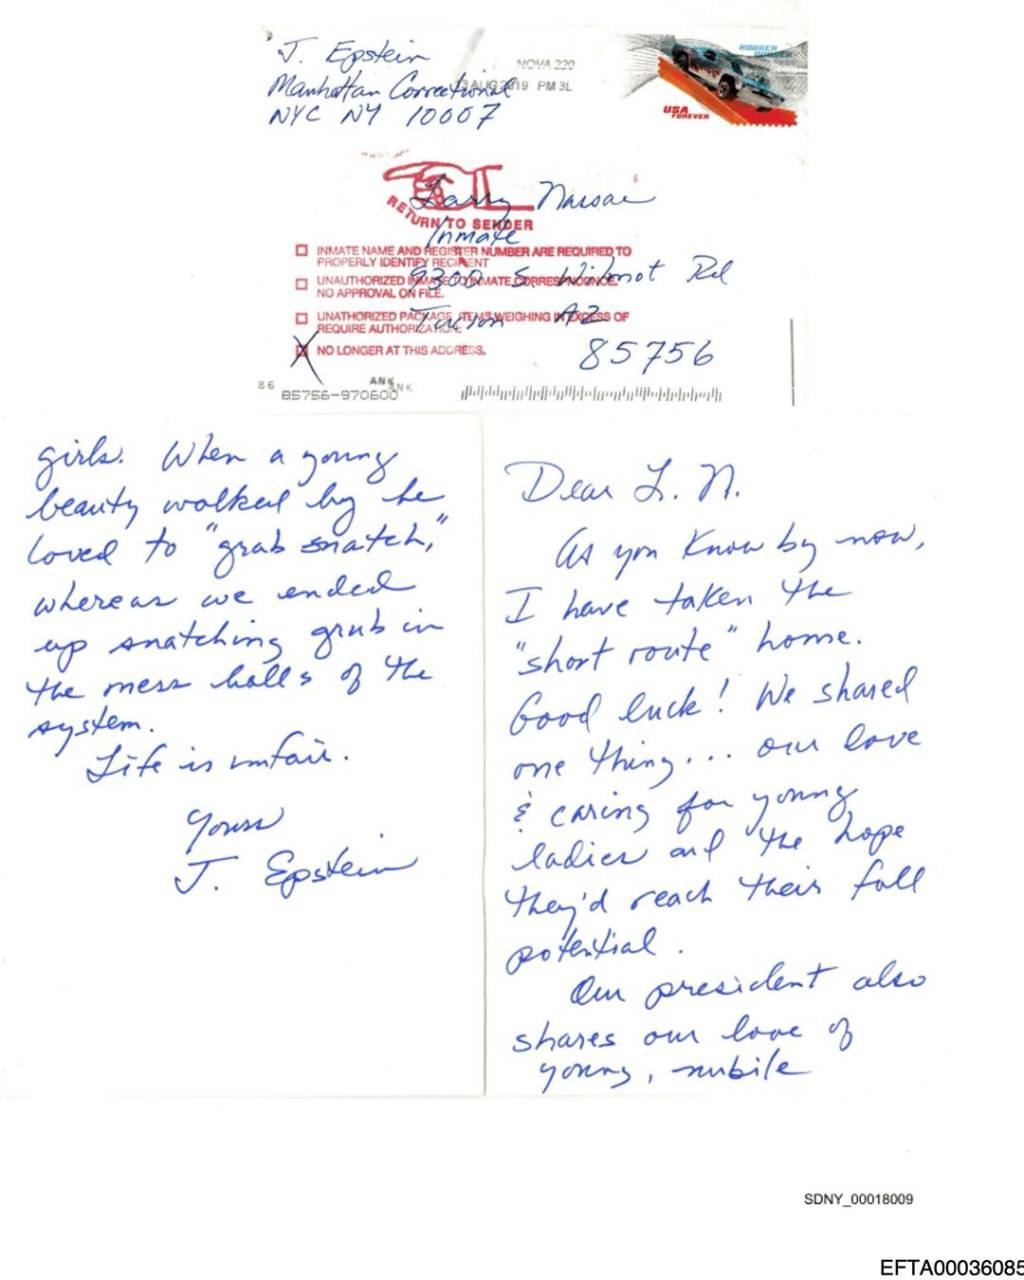 J. Epstein
Manhattan Correctional
NYC NY 10007
NOVA 220
13 AUG 2019 PM 3 L
USA
FOREVER
RETURN TO SENDER
Larry Nassar
Inmate
9300 S. Wilmot Rd
Tucson AZ
85756
INMATE NAME AND REGISTER NUMBER ARE REQUIRED TO
PROPERLY IDENTIFY RECIPIENT
UNAUTHORIZED INMATE TO INMATE CORRESPONDENCE,
NO APPROVAL ON FILE.
UNATHORIZED PACKAGE, ITEMS WEIGHING IN EXCESS OF
REQUIRE AUTHORIZATION.
NO LONGER AT THIS ADDRESS.
86
ANK
ANK
85756-970600
Dear L. N.
As you know by now,
I have taken the
"short route" home.
Good luck! We shared
one thing... our love
& caring for young
ladies and the hope
they'd reach their full
potential.
Our president also
shares our love of
young, nubile
girls. When a young
beauty walked by he
loved to "grab snatch,"
whereas we ended
up snatching grub in
the mess halls of the
system.
Life is unfair.
Yours
J. Epstein
SDNY_00018009
EFTA00036085